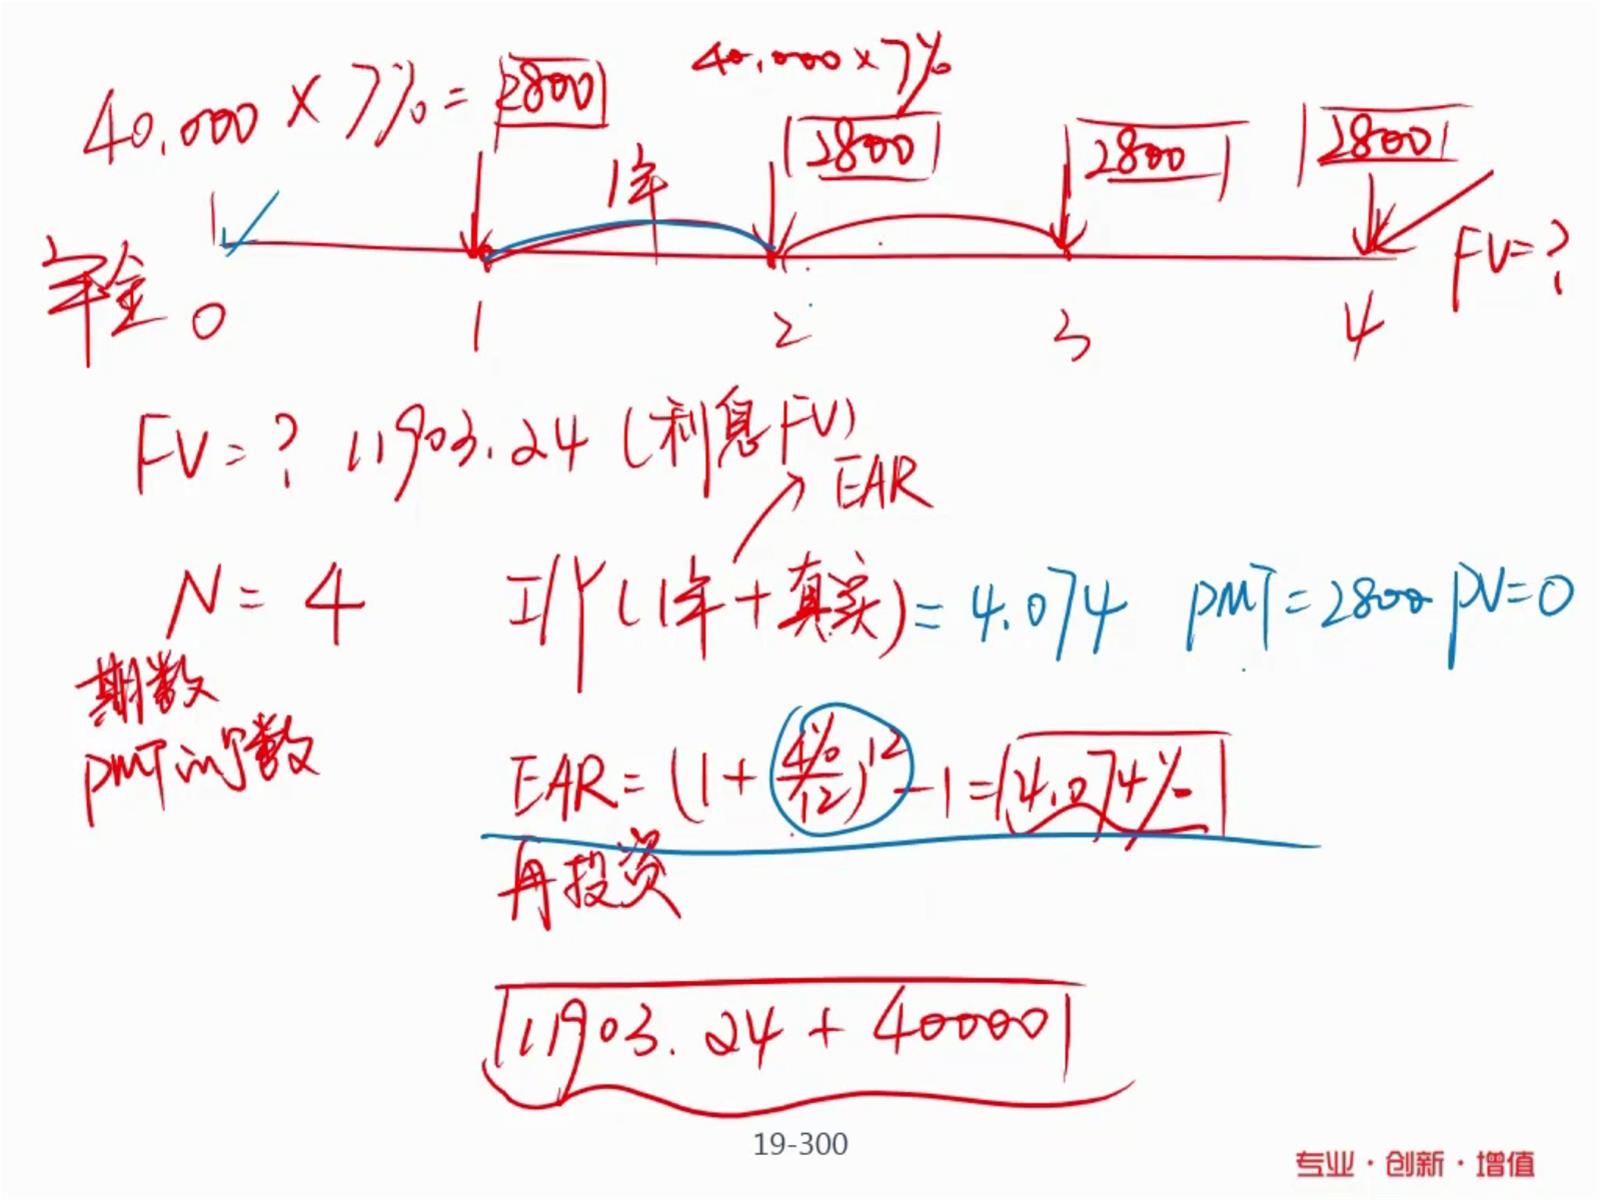 40.000 × 7% = 2800
40.000 × 7%
1年
2800
2800
2800
年金
0
1
2
3
4
FV=?
FV = ? 11903.24 (利息FV)
EAR
N = 4
I/Y (1年+真实) = 4.074 PMT = 2800 PV=0
期数
PMT的个数
EAR = (1 + 4%/12)^12 - 1 = 4.074%
再投资
11903.24 + 40000
19-300
专业·创新·增值